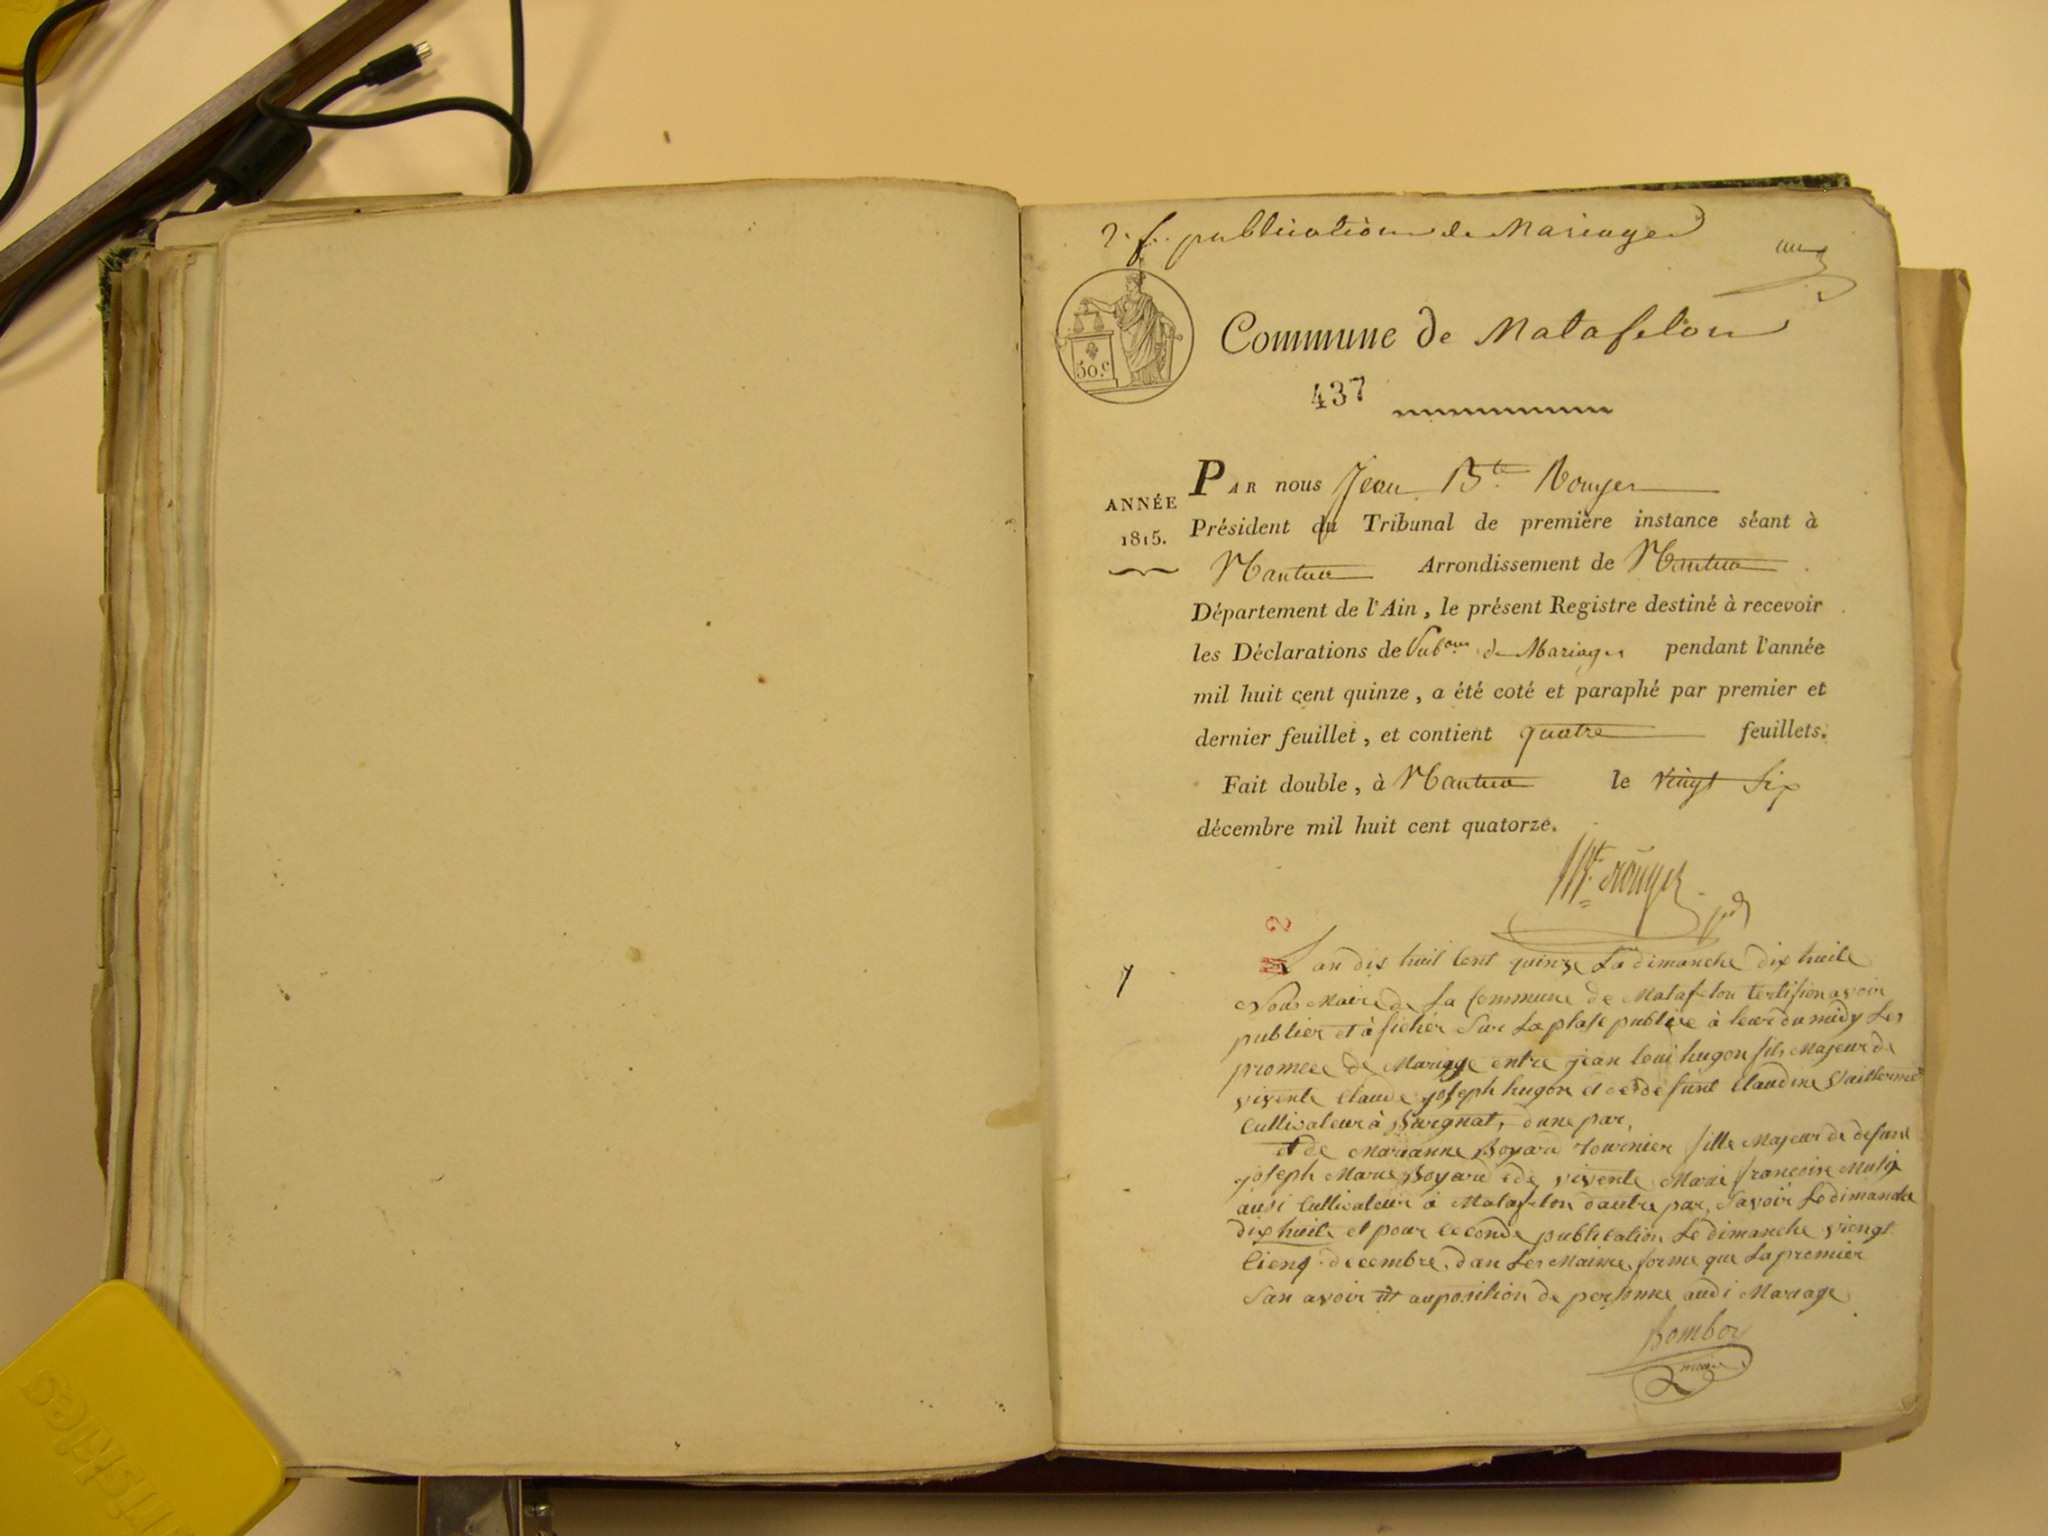 2. f. publication de Mariages
une
Commune de Matafelon
30.c
437
ANNÉE
1815.
PAR nous Jean Bte Rouyer
Président du Tribunal de première instance séant à
Nantua Arrondissement de Nantua
Département de l'Ain, le présent Registre destiné à recevoir
les Déclarations de Pubons de Mariages pendant l'année
mil huit cent quinze, a été coté et paraphé par premier et
dernier feuillet, et contient quatre feuillets.
Fait double, à Nantua le vingt six
décembre mil huit cent quatorze.
rouyer
M 2
L an dix huit cent quinze Le dimanche dix huite
Nous Maire de La Commune de Matafelon Certifion avoir
publier et à ficher Sur La plase publice à leur du midy Les
promece de Mariage entre jean loui hugon fils Majeur de
vivente Claude joseph hugon et de defunt Claudine
Cultivateur à dune par,
et de Marianne Boyard tournier fille Majeur de defunt
joseph Marie Boyard ede vivente Marie francoise
ausi Cultivateur à Matafelon dautre par, Savoir Le dimanche
dix huite et pour ceconde publication Le dimanche viengt
Cienq decembre, dan Les Maime forme que La premier
San avoir ut auposition de persunne audi Mariage
Bomboy
maire
mistles